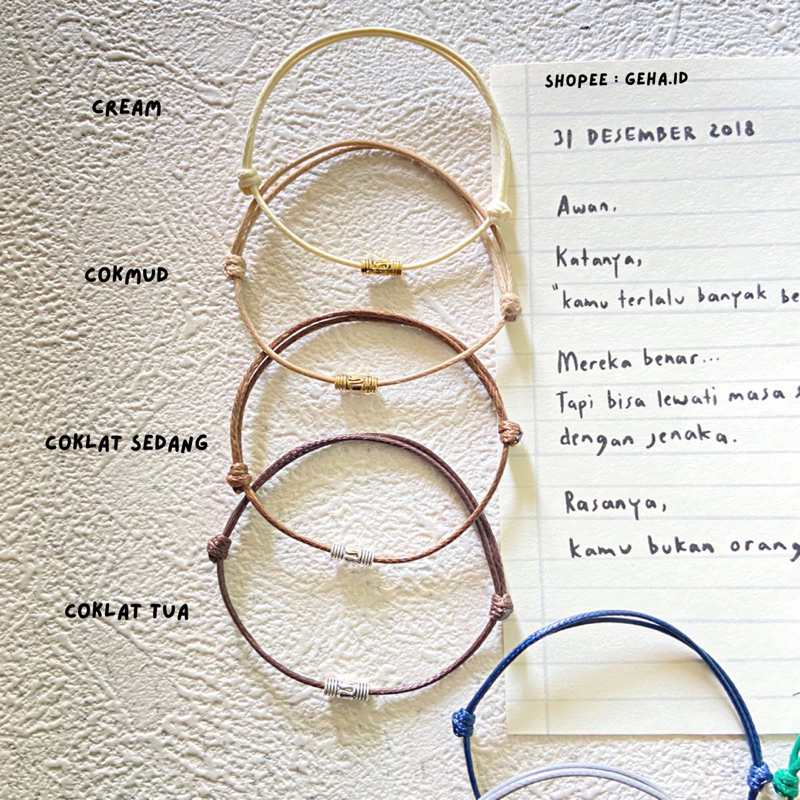 SHOPEE : GEHA.ID
CREAM
COKMUD
COKLAT SEDANG
COKLAT TUA
31 DESEMBER 2018
Awan.
Katanya,
"kamu terlalu banyak be
Mereka benar...
Tapi bisa lewati masa s
dengan jenaka.
Rasanya,
kamu bukan orang